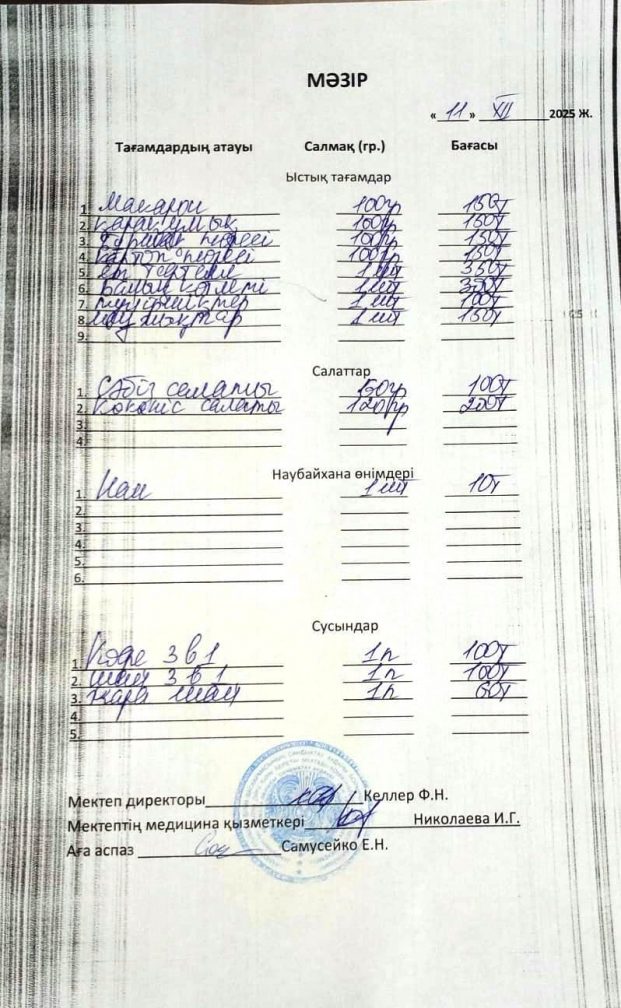 МӘЗІР
« 11 » XII 2025 Ж.
Тағамдардың атауы Салмақ (гр.) Бағасы
Ыстық тағамдар
1. Макарон 100гр 150т
2. Қарақұмық 100гр 150т
3. пюресі 100гр 150т
4. Картоп пюресі 100гр 150т
5. Ет 1 шт 350т
6. Балық котлеті 1 шт 300т
7. 1 шт 100т
8. 1 шт 150т
9.
Салаттар
1. Сәбіз салаты 100т
2. Көкөніс салаты 120гр 200т
3.
4.
Наубайхана өнімдері
1. Нан 1 шт 10т
2.
3.
4.
5.
6.
Сусындар
1. Кофе 3 в 1 1п 100т
2. шай 3 в 1 1п 100т
3. Қара шай 1п 60т
4.
5.
Мектеп директоры Келлер Ф.Н.
Мектептің медицина қызметкері Николаева И.Г.
Аға аспаз Самусейко Е.Н.